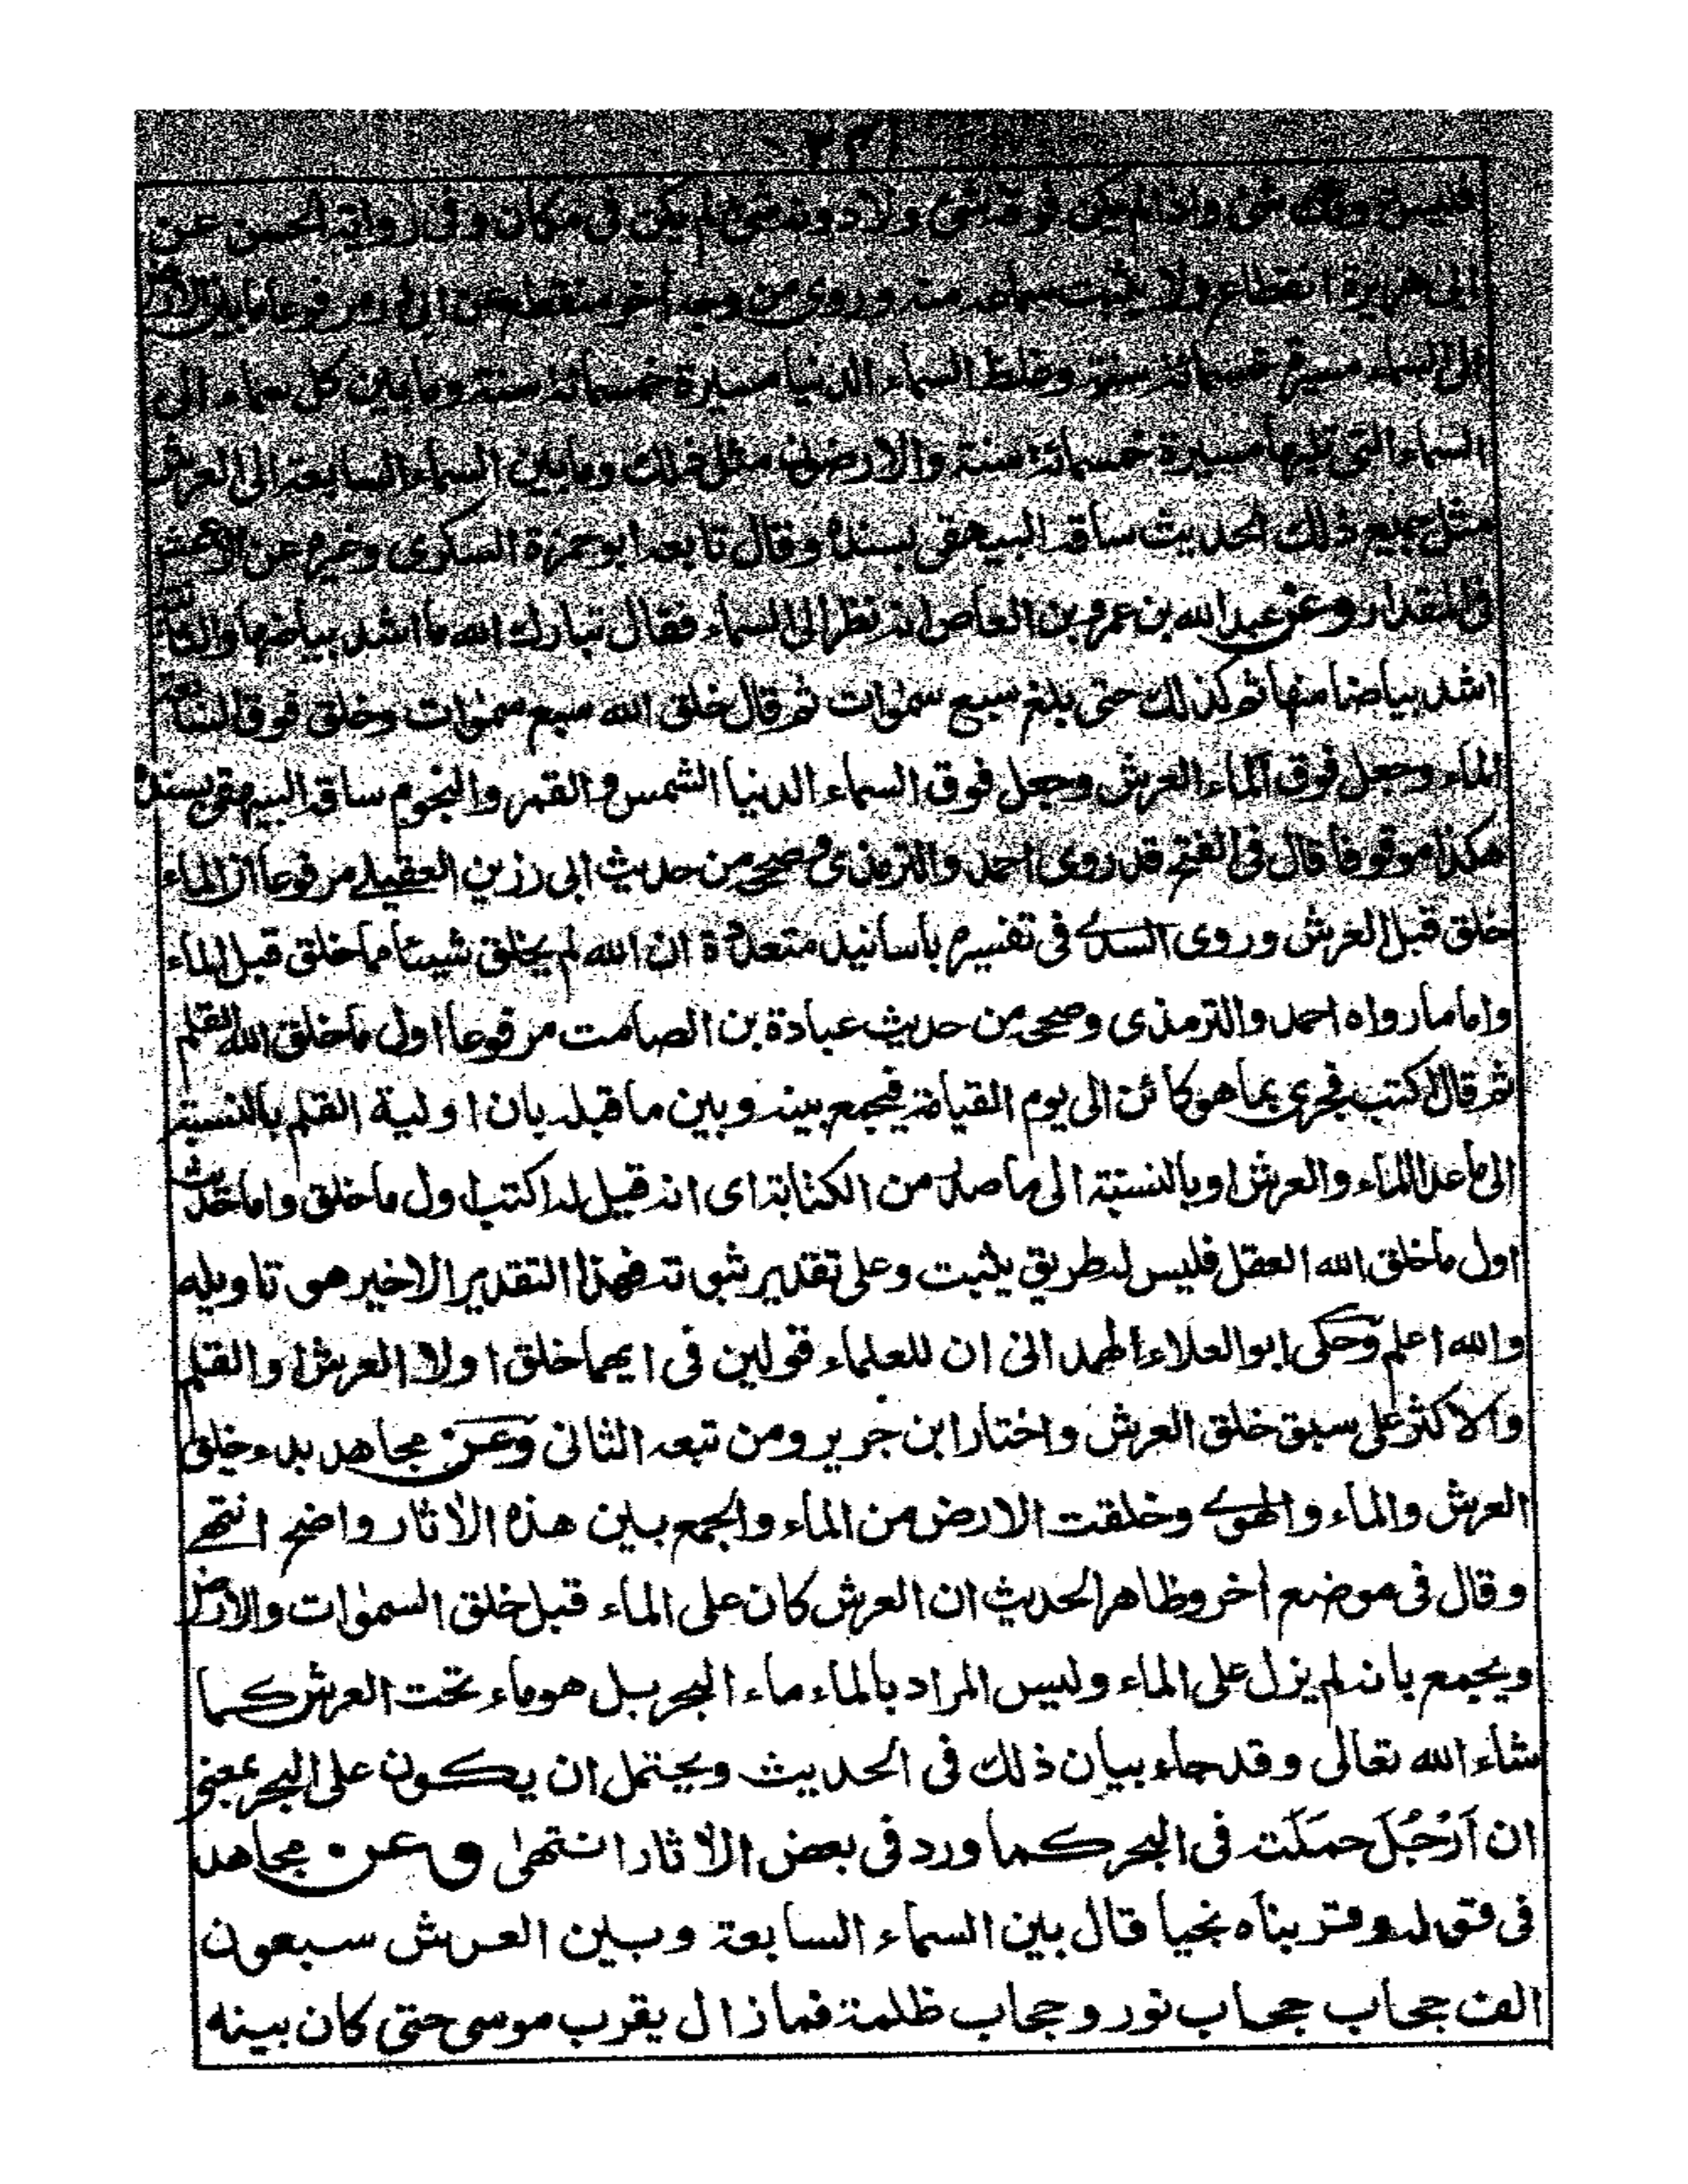 ٢٣١
فليس دونك شئ واذا لم يكن فوقه شئ ولا دونه شئ لم يكن فى مكان وفى رواية الحسن عن
ابى هريرة انقطاع ولا يثبت سماعه منه وروى من وجه اخر منقطع عن ابى ذر مرفوعا ما بين الارض
الى السماء مسيرة خمسمائة سنة وغلظ السماء الدنيا مسيرة خمسمائة سنة وما بين كل سماء الى
السماء التى تليها مسيرة خمسمائة سنة والارضون مثل ذلك وما بين السماء السابعة الى العرش
مثل جميع ذلك الحديث ساقه البيهقى بسنده وقال تابعه ابو حمزة السكرى وغيره عن الاعمش
فى المقدار وعن عبد الله بن عمرو بن العاص انه نظر الى السماء فقال تبارك الله ما اشد بياضها والثانية
اشد بياضا منها ثم كذلك حتى بلغ سبع سمٰوات ثم قال خلق الله سبع سمٰوات وخلق فوق السابعة
الماء وجعل فوق الماء العرش وجعل فوق السماء الدنيا الشمس والقمر والنجوم ساقه البيهقى بسنده
هكذا موقوفا قال فى الفتح قد روى احمد والترمذى وصححه من حديث ابى رزين العقيلے مرفوعا ان الماء
خلق قبل العرش وروى السدے فى تفسيره بأسانيد متعددة ان الله لم يخلق شيئا مما خلق قبل الماء
واما ما رواه احمد والترمذى وصححه من حديث عبادة بن الصامت مرفوعا اول ما خلق الله القلم
ثم قال اكتب فجرى بما هو كائن الى يوم القيامة فيجمع بينه وبين ما قبله بان اولية القلم بالنسبة
الى ما عدا الماء والعرش او بالنسبة الى ما صدر من الكتابة اى انه قيل له اكتب اول ما خلق واما حديث
اول ما خلق الله العقل فليس له طريق يثبت وعلى تقدير ثبوته فهذا التقدير الاخير هو تاويله
والله اعلم وحكى ابو العلاء الهمدانى ان للعلماء قولين فى ايهما خلق اولا العرش او القلم
والاكثر على سبق خلق العرش واختار ابن جرير ومن تبعه الثانى وعن مجاهد بدء خلق
العرش والماء والهوے وخلقت الارض من الماء والجمع بين هذه الاٰثار واضح انتهے
وقال فى موضع اٰخر وظاهر الحديث ان العرش كان على الماء قبل خلق السمٰوات والارض
ويجمع بانه لم يزل على الماء وليس المراد بالماء ماء البحر بل هو ماء تحت العرش كما
شاء الله تعالى وقد جاء بيان ذلك فى الحديث ويحتمل ان يكون على البحر بمعنى
ان اَرْجُلَ حمَلَتِه فى البحر كما ورد فى بعض الاٰثار انتهىٰ وعن مجاهد
فى قوله وقربناه نجيا قال بين السماء السابعة وبين العرش سبعون
الف حجاب حجاب نور وحجاب ظلمة فما زال يقرب موسى حتى كان بينه